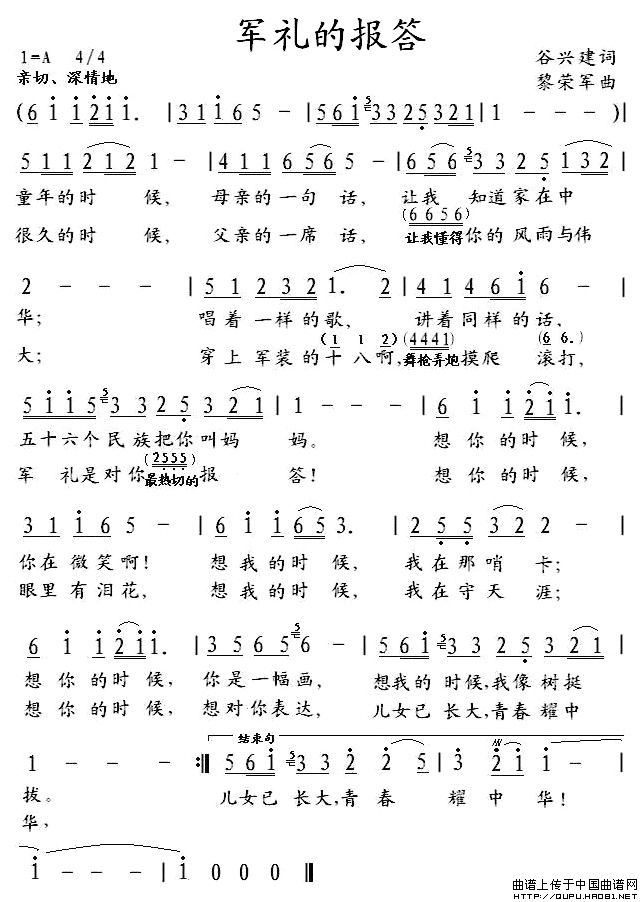 军礼的报答
1=A 4/4
谷兴建词
亲切、深情地
黎荣军曲
(6 i i 2 i i. | 3 1 i 6 5 - | 5 6 i 5 3 3 2 5 3 2 1 | 1 - - - )|
5 1 1 2 1 2 1 - | 4 1 1 6 5 6 5 - | 6 5 6 5 3 3 2 5 1 3 2 |
童年的时 候, 母亲的一句 话, 让我 知道家在中
(6 6 5 6)
很久的时 候, 父亲的一席 话, 让我懂得你的风雨与伟
2 - - - | 5 1 2 3 2 1. 2 | 4 1 4 6 i 6 - |
华; 唱着一样的歌, 讲着同样的话,
(1 1 2) (4441) (6 6.)
大; 穿上军装的十八啊, 舞枪弄炮摸爬 滚打,
5 i i 5 5 3 3 2 5 3 2 1 | 1 - - - | 6 i i 2 i i. |
五十六个民族把你叫妈 妈。 想你的时候,
(2555)
军 礼是对你最热切的报 答! 想你的时候,
3 1 i 6 5 - | 6 i i 6 5 3. | 2 5 5 3 2 2 - |
你在微笑啊! 想我的时候, 我在那哨卡;
眼里有泪花, 想我的时候, 我在守天涯;
6 i i 2 i i. | 3 5 6 5 5 6 - | 5 6 i 5 3 3 2 5 3 2 1 |
想你的时候, 你是一幅画, 想我的时候,我像树挺
想你的时候, 想对你表达, 儿女已长大,青春耀中
结束句
1 - - - :‖ 5 6 i 5 3 3 2 2 2 | 3 2 i i - |
拔。 儿女已长大,青春 耀中华!
华,
i - - - | i 0 0 0 ‖
曲谱上传于中国曲谱网
HTTP://QUPU.HAO81.NET